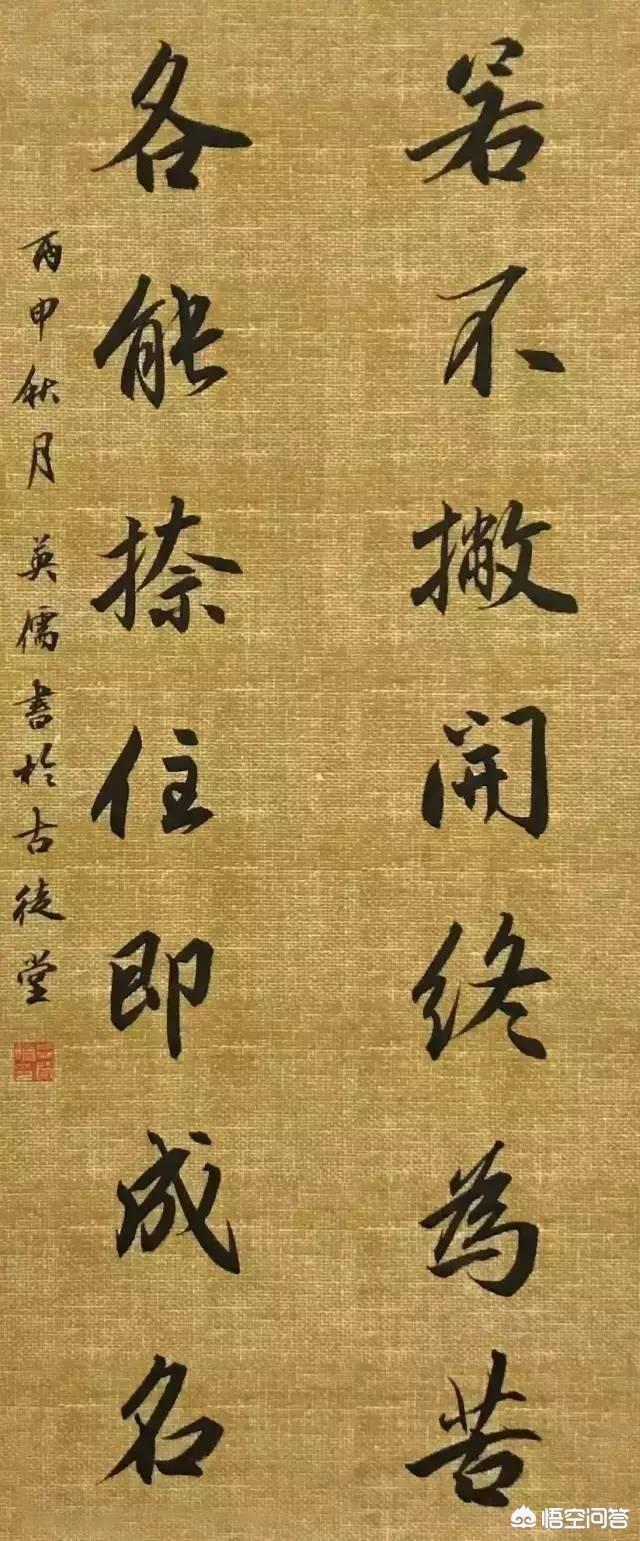 若不撇開终為苦
各能捺住即成名
丙申秋月英儒書於古徒堂
悟空问答